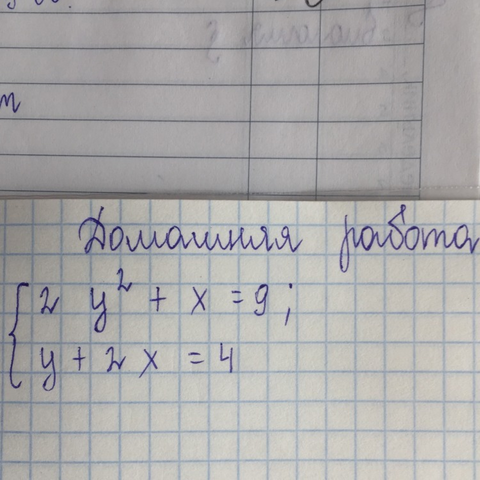 Домашняя работа
2 y² + x = 9;
y + 2 x = 4